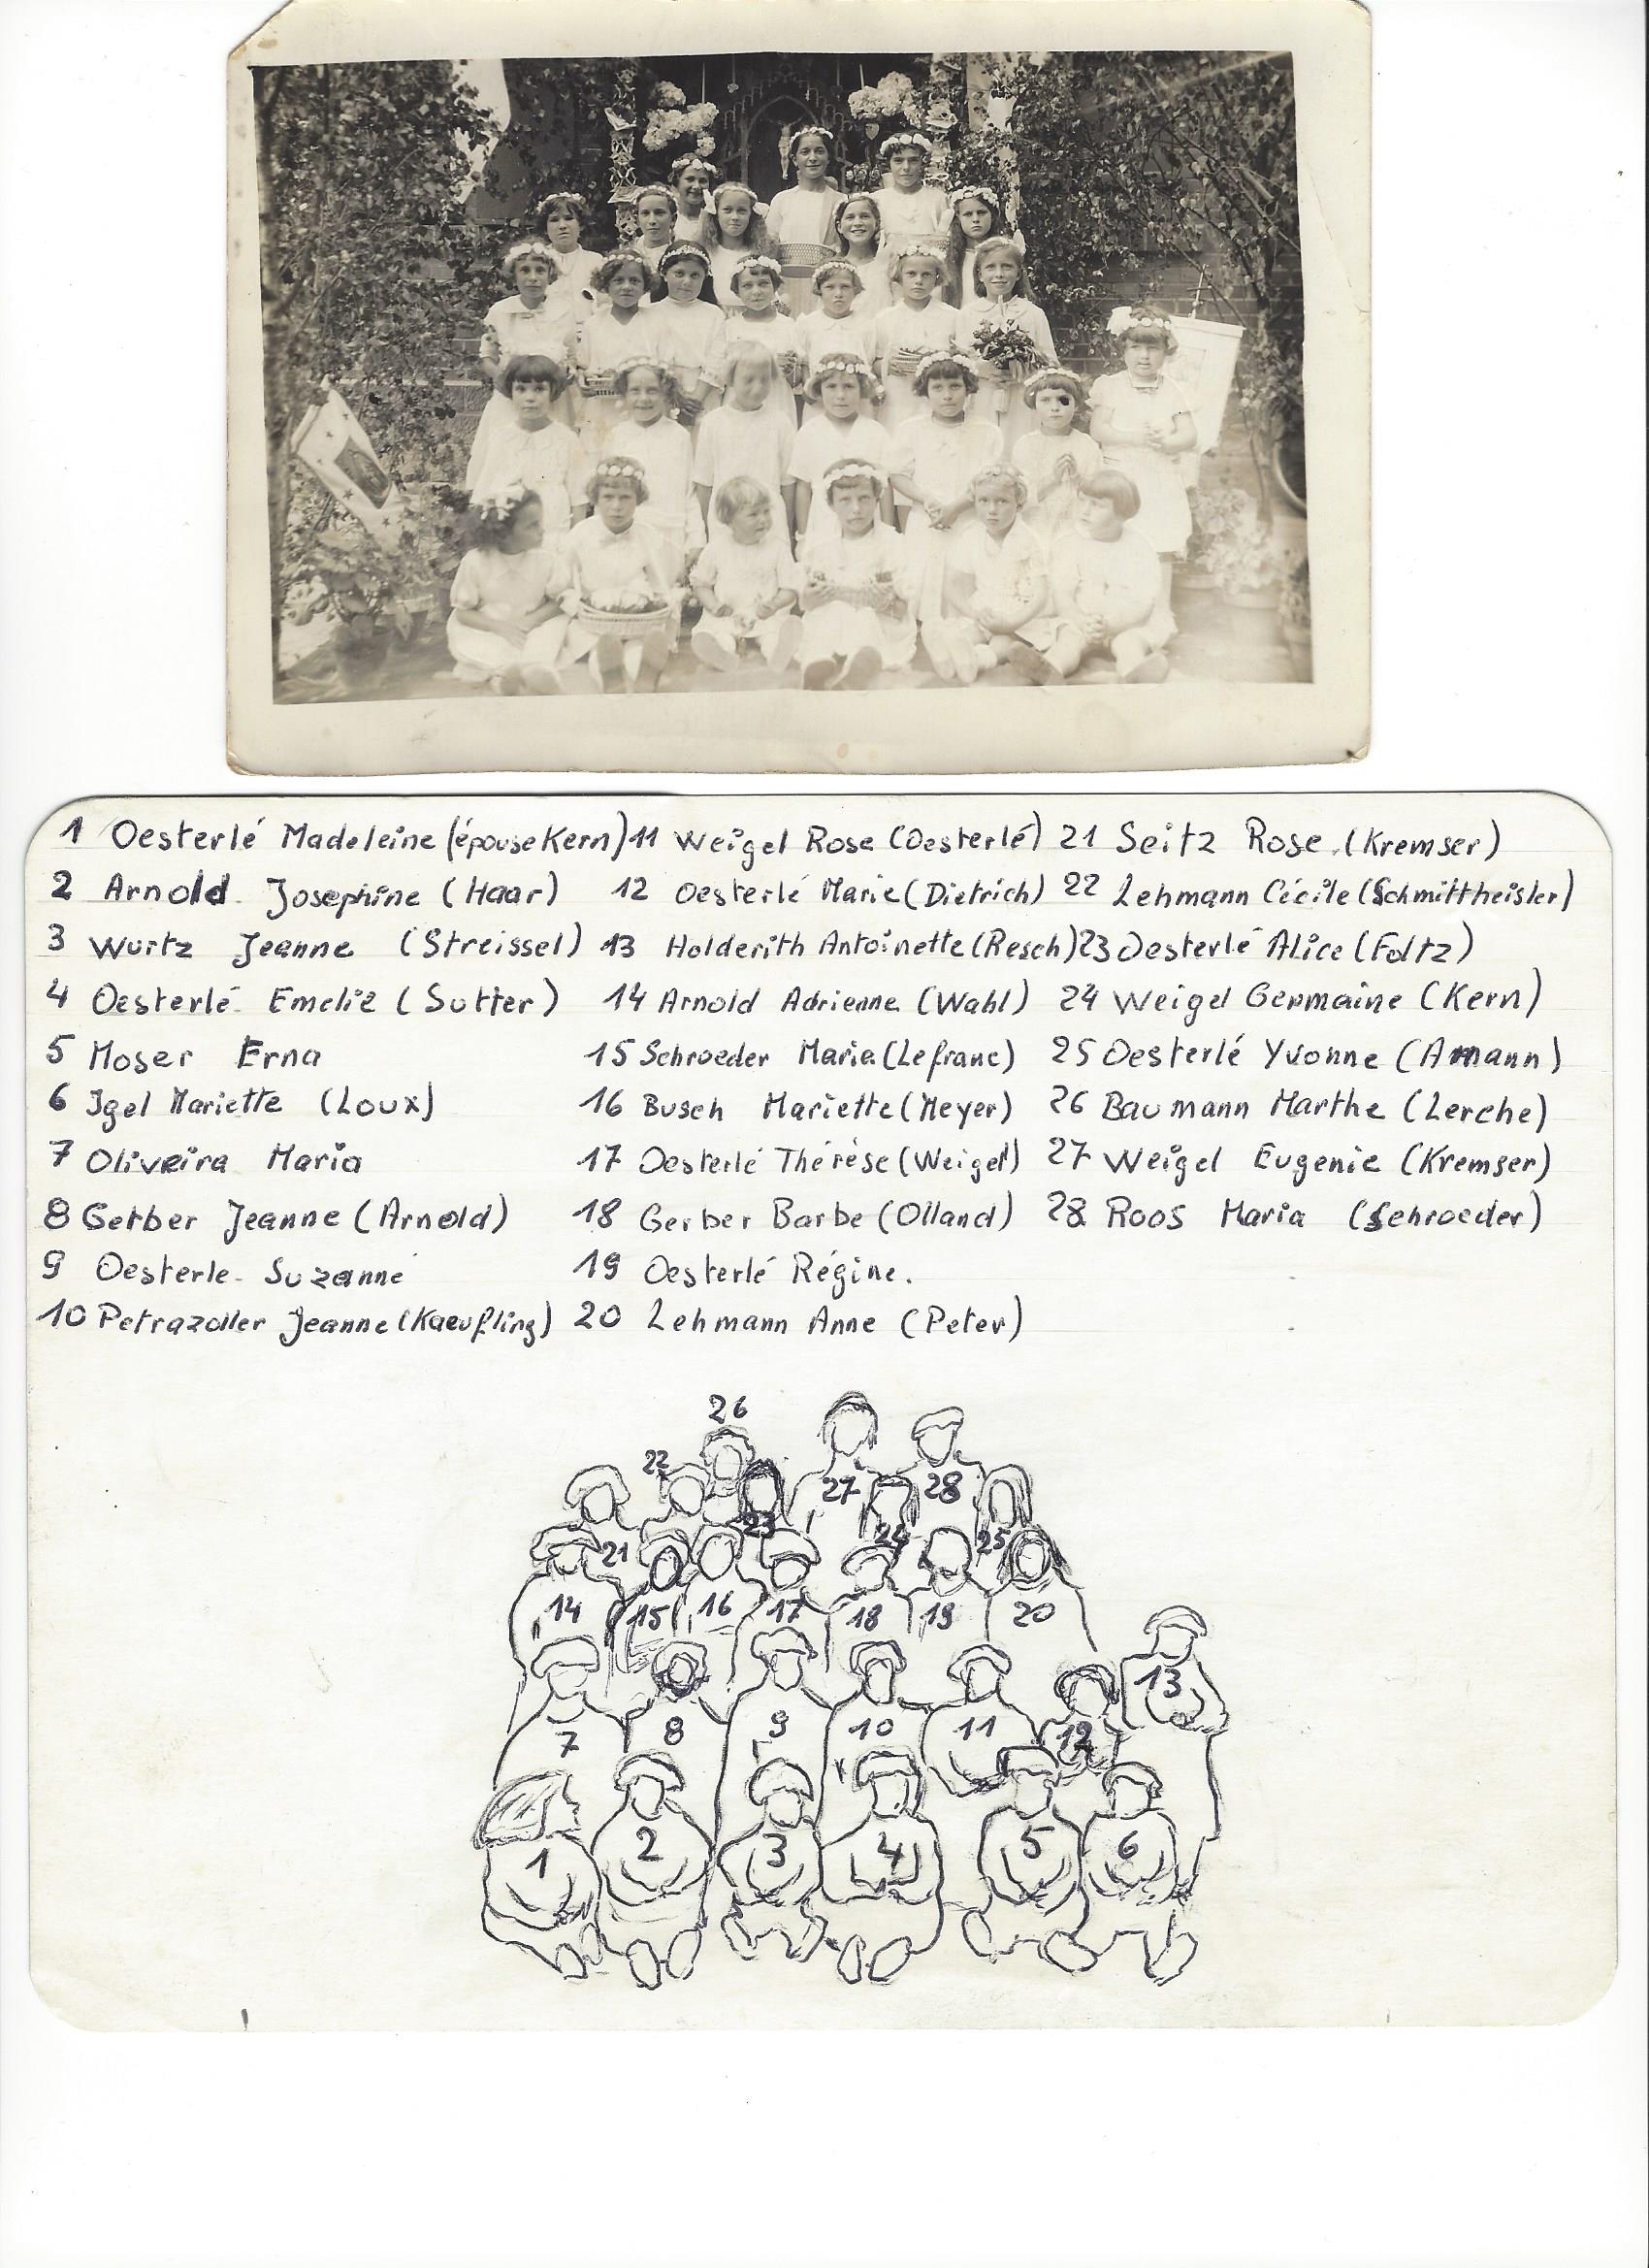 1 Oesterlé Madeleine (épouse Kern)
2 Arnold Josephine (Haar)
3 Wurtz Jeanne (Streissel)
4 Oesterlé Emelie (Sutter)
5 Moser Erna
6 Igel Mariette (Loux)
7 Oliveira Maria
8 Gerber Jeanne (Arnold)
9 Oesterle Suzanne
10 Petrazoller Jeanne (Kaeufling)
11 Weigel Rose (Oesterlé)
12 Oesterlé Marie (Dietrich)
13 Holderith Antoinette (Resch)
14 Arnold Adrienne (Wahl)
15 Schroeder Maria (Lefranc)
16 Busch Mariette (Meyer)
17 Oesterlé Thérèse (Weigel)
18 Gerber Barbe (Olland)
19 Oesterlé Régine.
20 Lehmann Anne (Peter)
21 Seitz Rose (Kremser)
22 Lehmann Cécile (Schmittheisler)
23 Oesterlé Alice (Foltz)
24 Weigel Germaine (Kern)
25 Oesterlé Yvonne (Amann)
26 Baumann Marthe (Lerche)
27 Weigel Eugenie (Kremser)
28 Roos Maria (Schroeder)
26
22
27 28
23 24 25
21
14 15 16 17 18 19 20
13
7 8 9 10 11 12
1 2 3 4 5 6